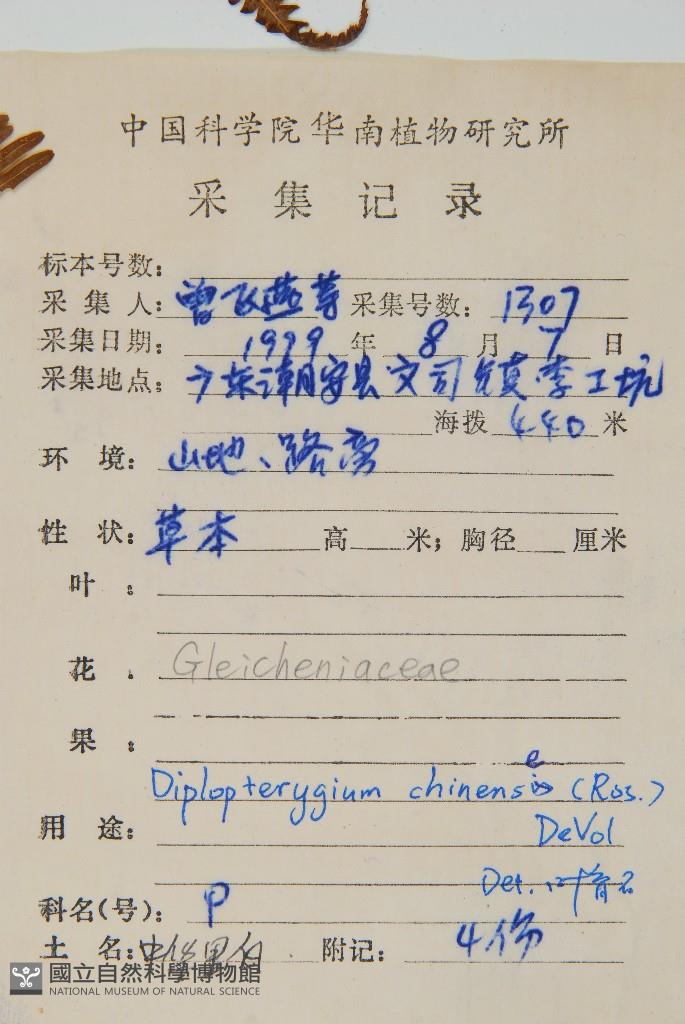 中国科学院华南植物研究所
采集记录
标本号数:
采集人: 曾飞燕等 采集号数: 1307
采集日期: 1999 年 8 月 7 日
采集地点: 广东潮安县文司镇李工坑
海拨 440 米
环境: 山地、路旁
性状: 草本 高 米; 胸径 厘米
叶:
花: Gleicheniaceae
果:
Diplopterygium chinense (Ros.)
用途: DeVol
Det. 叶育石
科名(号): P
土名: 中华里白 附记: 4份
國立自然科學博物館
NATIONAL MUSEUM OF NATURAL SCIENCE